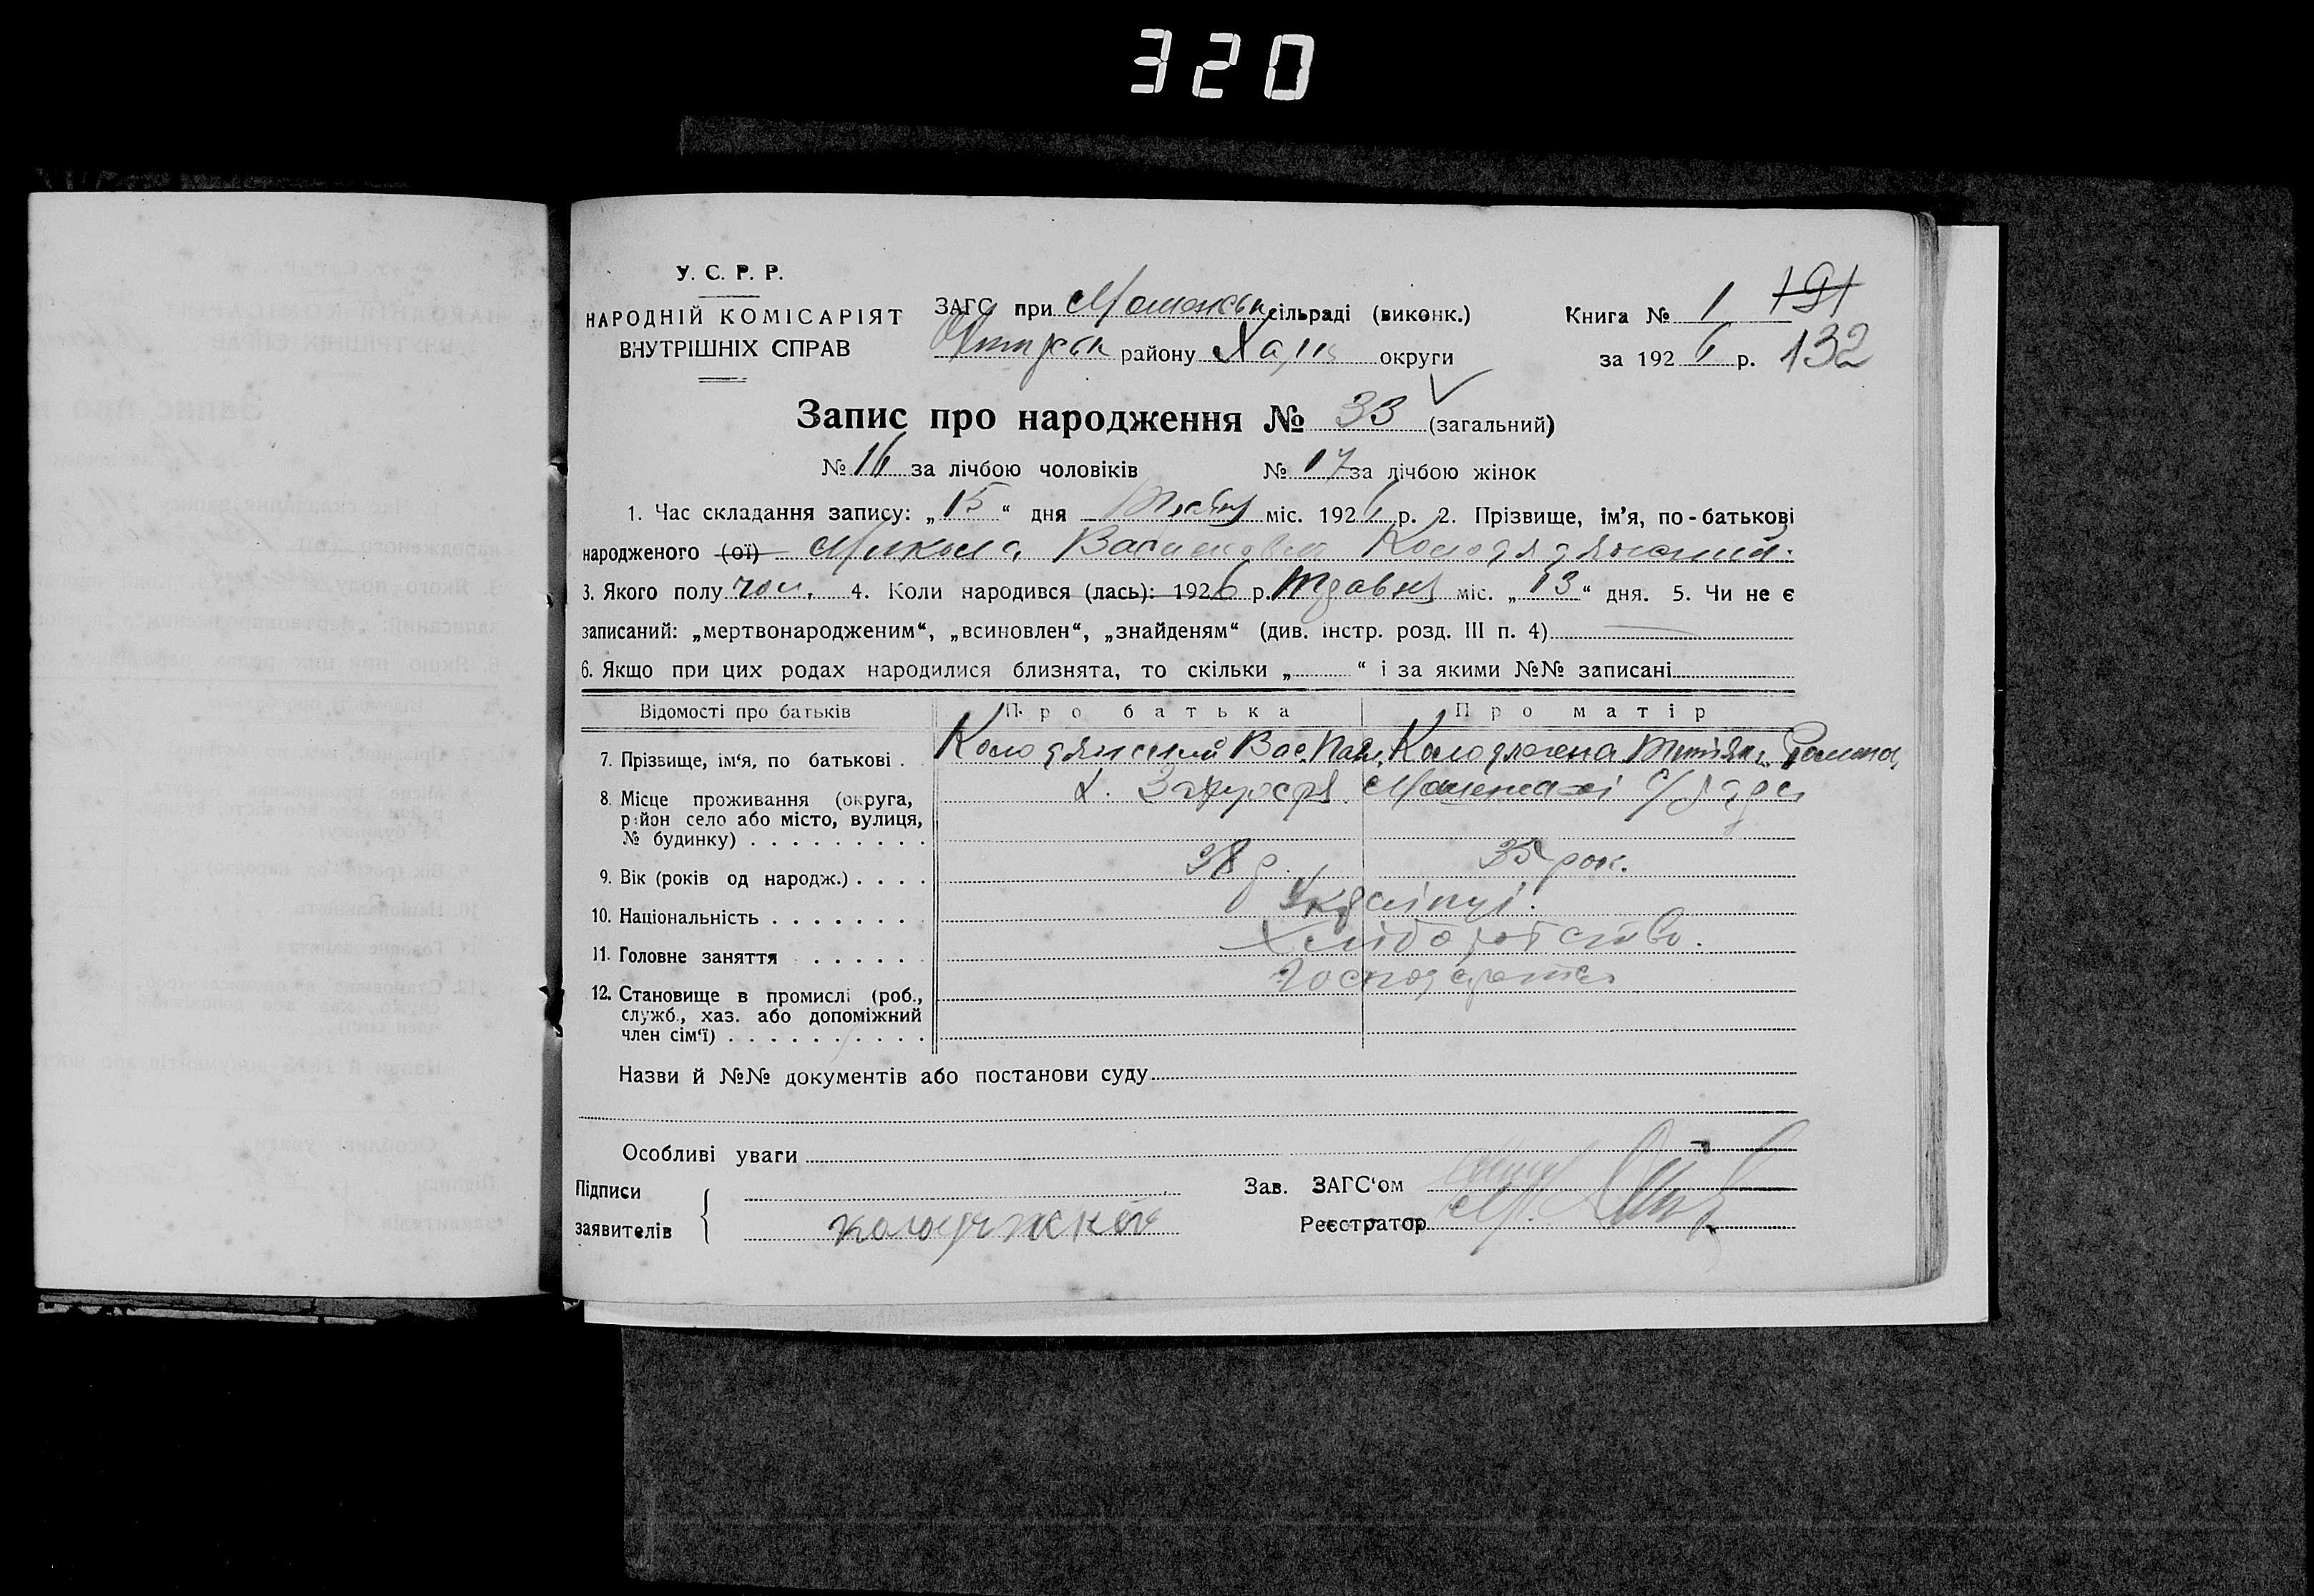 320
У. С. Р. Р.
НАРОДНІЙ КОМІСАРІЯТ
ВНУТРІШНІХ СПРАВ
ЗАГС при сільраді (виконк.)
району Харк округи
Книга № 1 191
за 1926 р. 132
Запис про народження № 33 (загальний)
№ 16 за лічбою чоловіків № 17 за лічбою жінок
1. Час складання запису: „15“ дня міс. 1926 р. 2. Прізвище, ім’я, по-батькові
народженого (ої) Микола Васильович Колодяжний.
3. Якого полу чол. 4. Коли народився (лась): 1926 р. Травня міс. „13“ дня. 5. Чи не є
записаний: „мертвонародженим“, „всиновлен“, „знайденям“ (див. інстр. розд. III п. 4)
6. Якщо при цих родах народилися близнята, то скільки „ “ і за якими №№ записані
Відомості про батьків Про батька Про матір
7. Прізвище, ім‘я, по батькові . Колодяжний Вас. Колодяжна
8. Місце проживання (округа,
район село або місто, вулиця,
№ будинку) . . . . . . . . .
9. Вік (років од народж.) . . . . 38 р. 35 рок.
10. Національність . . . . . . . Українці.
11. Головне заняття . . . . . . Хліборобство.
12. Становище в промислі (роб.,
служб., хаз. або допоміжний
член сім‘ї) . . . . . . . . . .
Назви й №№ документів або постанови суду
Особливі уваги
Підписи
заявителів
Зав. ЗАГС‘ом
Реєстратор